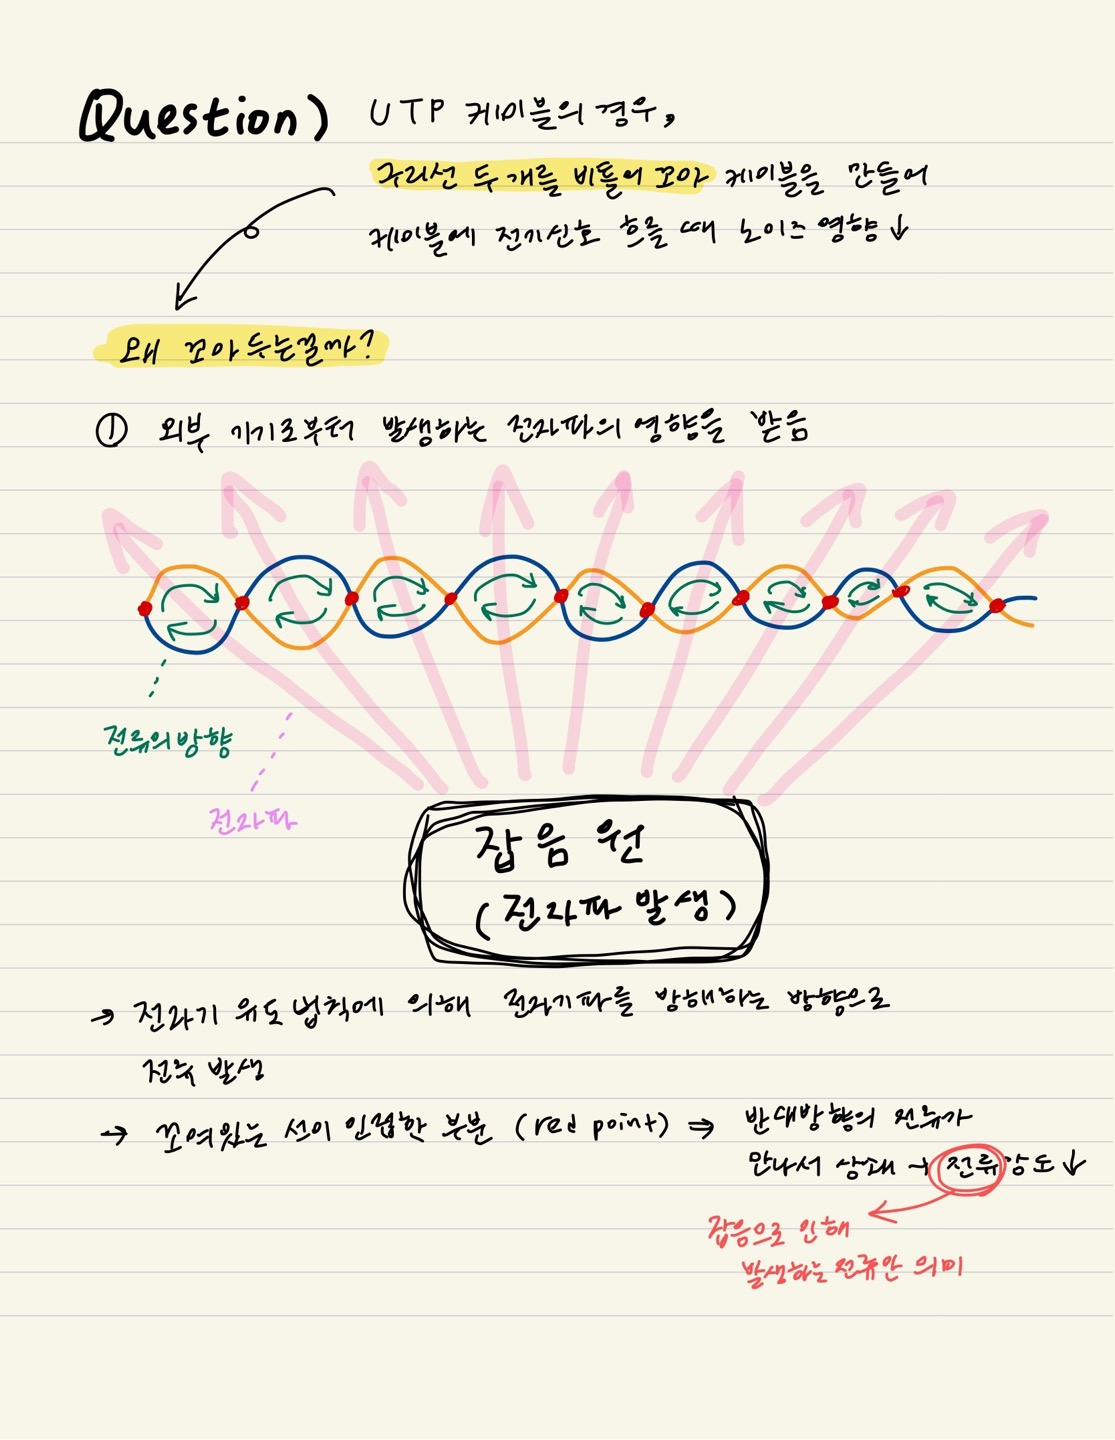 Question) UTP 케이블의 경우,
구리선 두 개를 비틀어 꼬아 케이블을 만들어
케이블에 전기신호 흐를 때 노이즈 영향↓
왜 꼬아 두는걸까?
① 외부 기기로부터 발생하는 전자파의 영향을 받음
전류의 방향
전자파
잡음원
(전자파 발생)
→ 전자기 유도 법칙에 의해 전자기파를 방해하는 방향으로
전류 발생
→ 꼬여있는 선이 인접한 부분 (red point) ⇒ 반대방향의 전류가
만나서 상쇄 → 전류강도↓
잡음으로 인해
발생하는 전류만 의미